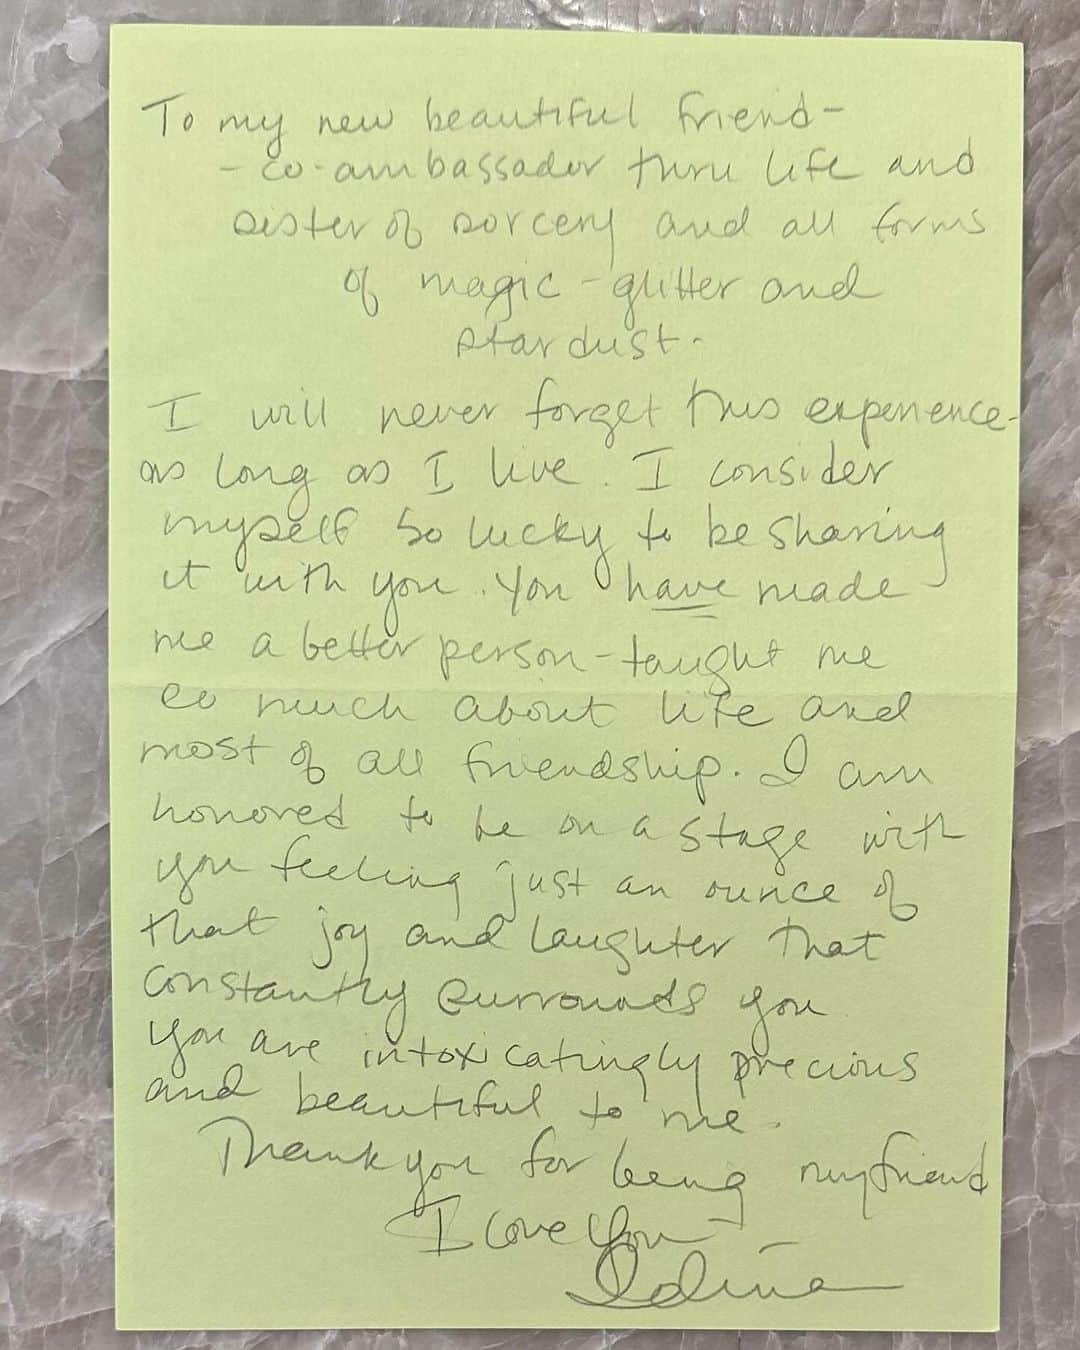 To my new beautiful friend-
- co-ambassador thru life and
sister of sorcery and all forms
of magic - glitter and
stardust.
I will never forget this experience-
as long as I live. I consider
myself so lucky to be sharing
it with you. You have made
me a better person - taught me
so much about life and
most of all friendship. I am
honored to be on a stage with
you feeling just an ounce of
that joy and laughter that
constantly surrounds you
You are intoxicatingly precious
and beautiful to me.
Thank you for being my friend
I love you
Idina